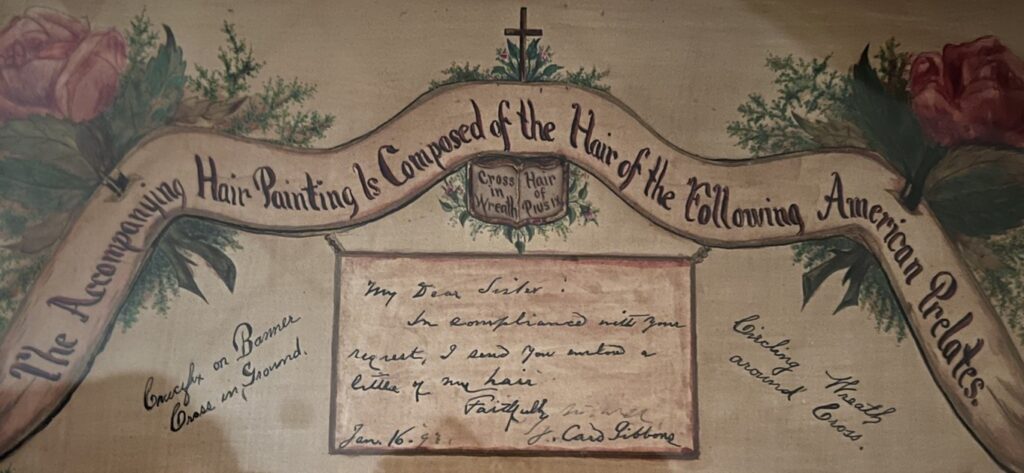 The Accompanying Hair Painting Is Composed of the Hair of the Following American Prelates.
Cross in Wreath
Hair of Pius IX
Crucifix on Banner
Cross in Ground.
My Dear Sister:
In compliance with your
request, I send you enclosed a
little of my hair
Faithfully
Jan. 16.
J. Card Gibbons
Circling Wreath
around Cross.